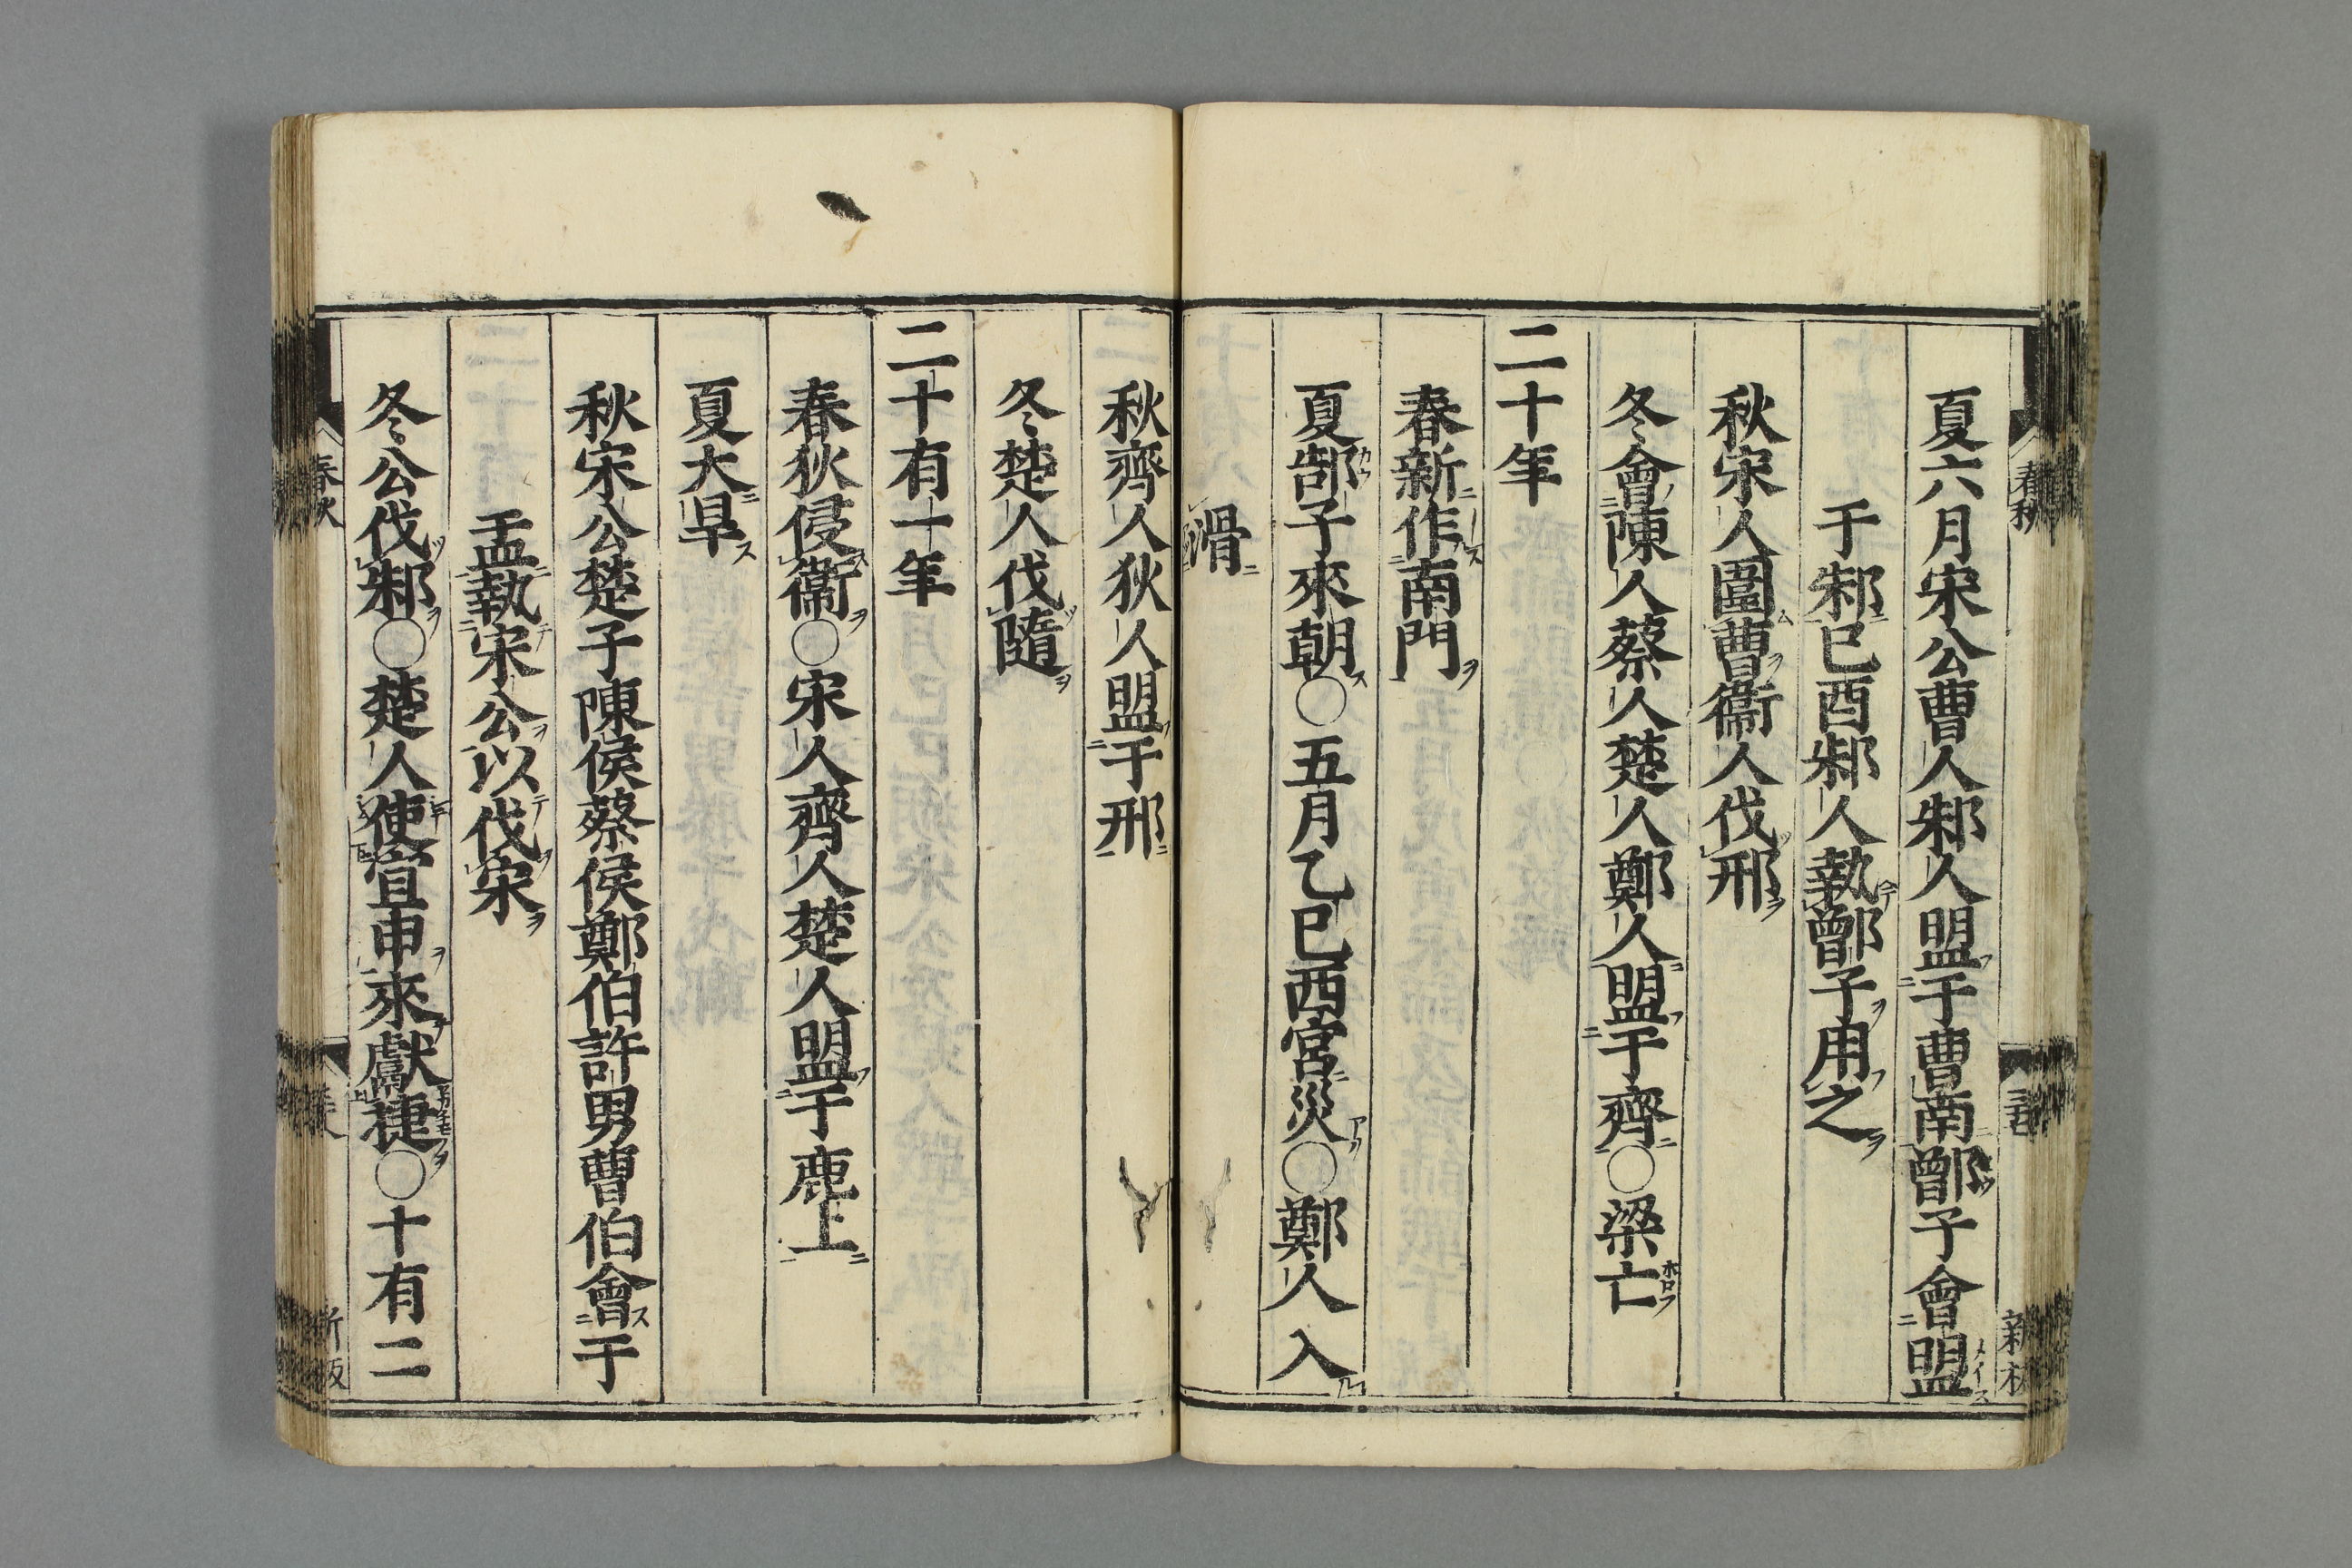 夏六月宋公曹人邾人盟于曹南鄫子會盟
于邾巳酉邾人執鄫子用之
秋宋人圍曹衞人伐邢
冬會陳人蔡人楚人鄭人盟于齊〇梁亡
二十年
春新作南門
夏郜子來朝〇五月乙巳西宮災〇鄭人入
滑
秋齊人狄人盟于邢
冬楚人伐隨
二十有一年
春狄侵衞〇宋人齊人楚人盟于鹿上
夏大旱
秋宋公楚子陳侯蔡侯鄭伯許男曹伯會于
盂執宋公以伐宋
冬公伐邾〇楚人使宜申來獻捷〇十有二
春秋